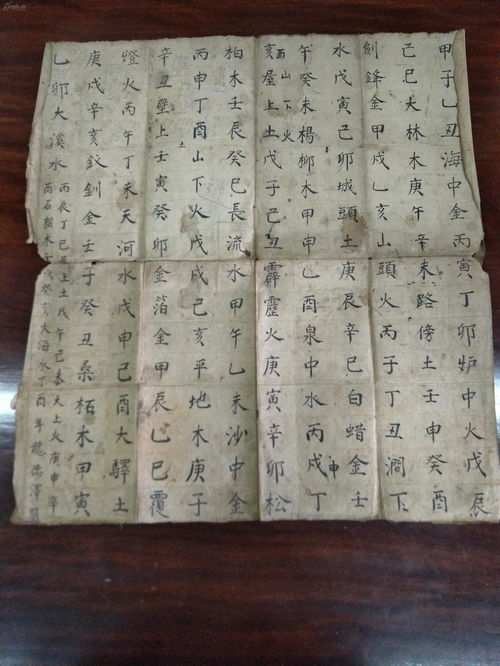 甲子乙丑海中金丙寅丁卯炉中火戊辰
己巳大林木庚午辛未路傍土壬申癸酉
劍鋒金甲戌乙亥山頭火丙子丁丑澗下
水戊寅己卯城頭土庚辰辛巳白蜡金壬
午癸未楊柳木甲申乙酉泉中水丙戌丁
申
酉山下火
亥屋上土戊子己丑霹靂火庚寅辛卯松
柏木壬辰癸巳長流水甲午乙未沙中金
丙申丁酉山下火戊戌己亥平地木庚子
土
辛丑壁上壬寅癸卯金箔金甲辰乙巳覆
燈火丙午丁未天河水戊申己酉大驛土
庚戌辛亥釵釧金壬子癸丑桑柘木甲寅
乙卯大溪水
丙辰丁巳上土戊午己未天上火庚申辛
酉石榴木戌癸亥大海水丁酉年龍德澤